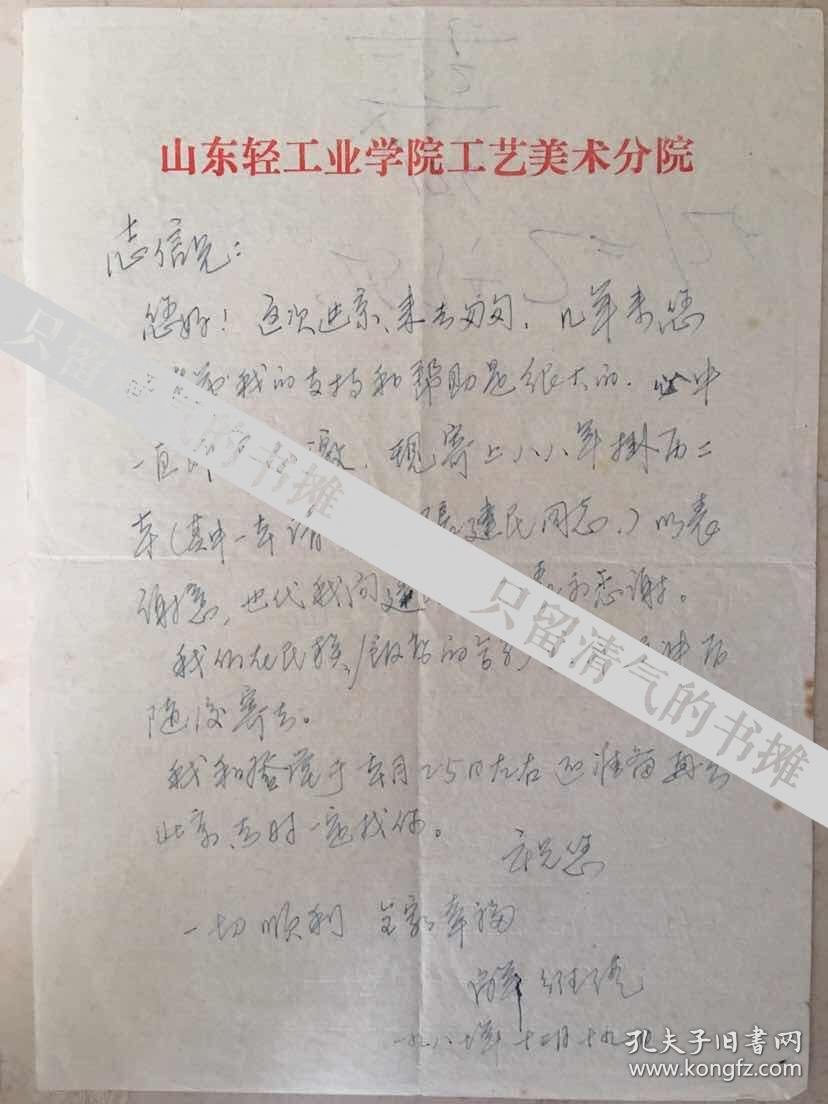 山东轻工业学院工艺美术分院
志信兄：
您好！这次进京、来去匆匆，几年来您
我的支持和帮助是很大的，心中
一直 激，现寄上八八年掛历二
本（其中一本请 張建民同志，）以表
谢意，也代我向建 和感谢。
我们在民族 的 冲 后
随后寄去。
我和 于本月25日左右还准备再去
北京 去时一定找你。
祝您
一切顺利 全家幸福
一九八七年十二月十九日
只留清气的书摊
只留清气的书摊
孔夫子旧书网
www.kongfz.com